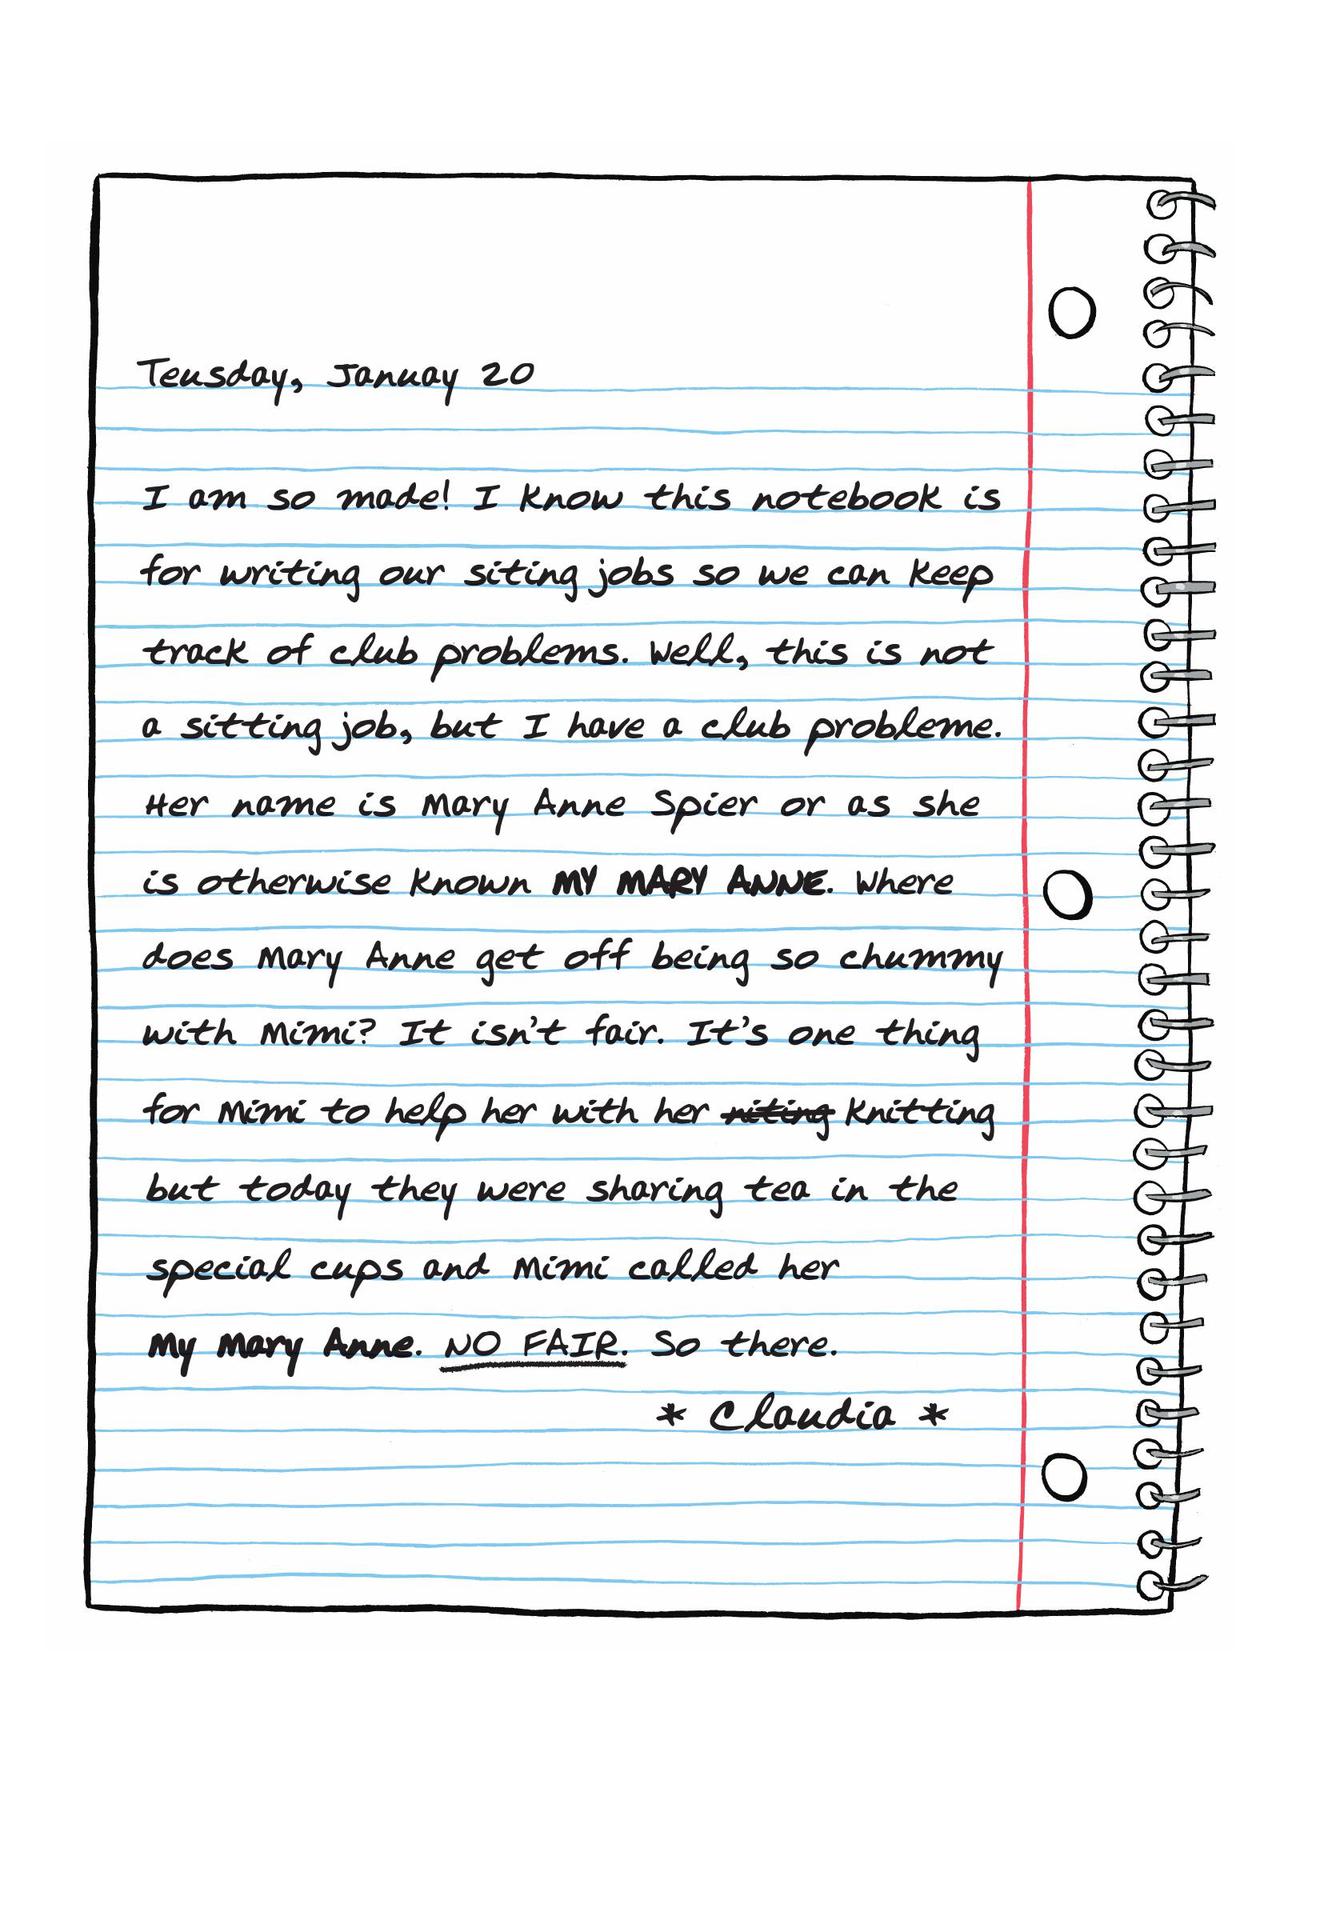 Teusday, Januay 20
I am so made! I know this notebook is
for writing our siting jobs so we can keep
track of club problems. Well, this is not
a sitting job, but I have a club probleme.
Her name is Mary Anne Spier or as she
is otherwise known MY MARY ANNE. Where
does Mary Anne get off being so chummy
with Mimi? It isn't fair. It's one thing
for Mimi to help her with her niting knitting
but today they were sharing tea in the
special cups and Mimi called her
My Mary Anne. NO FAIR. So there.
* Claudia *